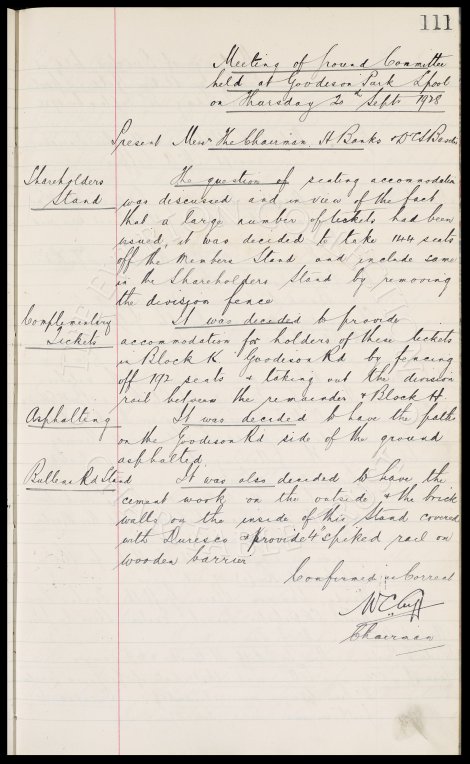 111
Meeting of Ground Committee
held at Goodison Park Lpool
on Thursday 20th Septr 1928
Present Messrs The Chairman, A Banks & Dr C S Baxter
Shareholders
Stand
The question of seating accommodation
was discussed and in view of the fact
that a large number of tickets had been
issued, it was decided to take 1144 seats
off the Members Stand and include same
in the Shareholders Stand by removing
the division fence
Complimentary
Tickets
It was decided to provide
accommodation for holders of these tickets
in Block K Goodison Rd by fencing
off 192 seats & taking out the division
rail between the remainder & Block H
Asphalting
It was decided to have the path
on the Goodison Rd side of the ground
asphalted
Bullens Rd Stand
It was also decided to have the
cement work on the outside & the brick
walls on the inside of this Stand covered
with Duresco & provide 4" spiked rail on
wooden barrier
Confirmed as Correct
W C Cuff
Chairman